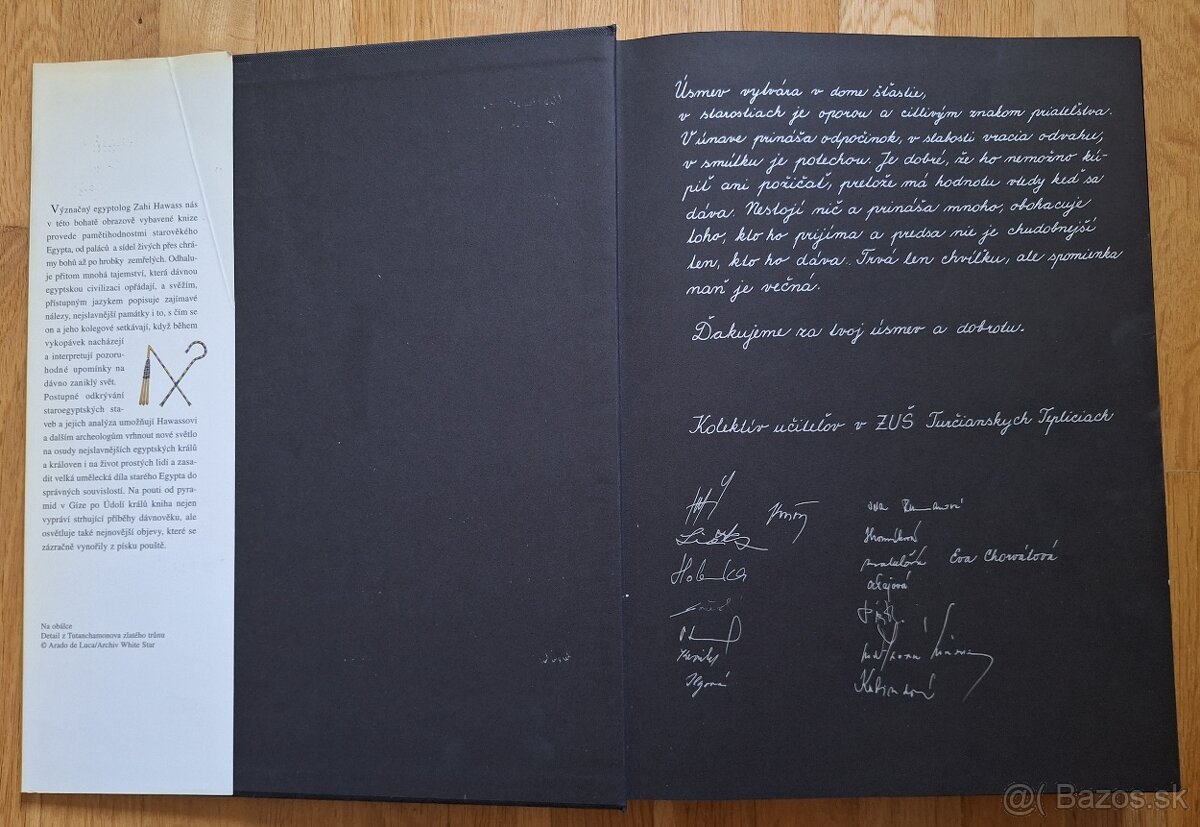 Význačný egyptolog Zahi Hawass nás
v této bohatě obrazově vybavené knize
provede pamětihodnostmi starověkého
Egypta, od paláců a sídel živých přes chrá-
my bohů až po hrobky zemřelých. Odhalu-
je přitom mnohá tajemství, která dávnou
egyptskou civilizaci opřádají, a svěžím,
přístupným jazykem popisuje zajímavé
nálezy, nejslavnější památky i to, s čím se
on a jeho kolegové setkávají, když během
vykopávek nacházejí
a interpretují pozoru-
hodné upomínky na
dávno zaniklý svět.
Postupné odkrývání
staroegyptských sta-
veb a jejich analýza umožňují Hawassovi
a dalším archeologům vrhnout nové světlo
na osudy nejslavnějších egyptských králů
a královen i na život prostých lidí a zasa-
dit velká umělecká díla starého Egypta do
správných souvislostí. Na pouti od pyra-
mid v Gíze po Údolí králů kniha nejen
vypráví strhující příběhy dávnověku, ale
osvětluje také nejnovější objevy, které se
zázračně vynořily z písku pouště.
Na obálce
Detail z Tutanchamonova zlatého trůnu
© Arado de Luca/Archiv White Star
Úsmev vytvára v dome šťastie,
v starostiach je oporou a citlivým znakom priateľstva.
V únave prináša odpočinok, v slabosti vracia odvahu,
v smútku je potechou. Je dobré, že ho nemožno kú-
piť ani požičať, pretože má hodnotu vtedy keď sa
dáva. Nestojí nič a prináša mnoho, obohacuje
toho, kto ho prijíma a predsa nie je chudobnejší
ten, kto ho dáva. Trvá len chvíľku, ale spomienka
naň je večná.
Ďakujeme za tvoj úsmev a dobrotu.
Kolektív učiteľov v ZUŠ Turčianskych Tepliciach
Eva Chorvátová
Ilgová
@( Bazos.sk